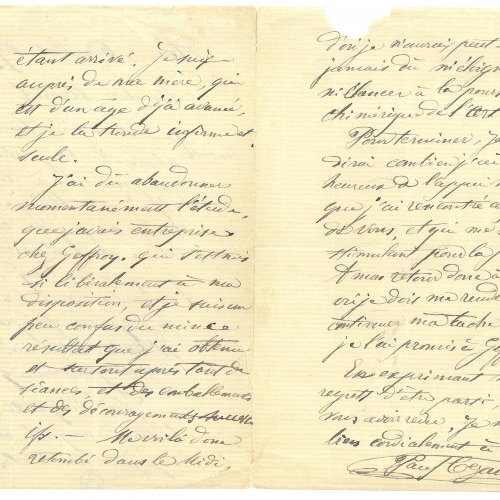 étant arrivé. Je suis
auprès de ma mère, qui
est d'un age déjà avancé,
et je la trouve infirme et
seule.
J'ai dû abandonner
momentanément l'étude,
que j'avais entreprise
chez Geffroy. qui s'est mis
si libéralement à ma
disposition, et je suis un
peu confus du mince
résultat que j'ai obtenu
et surtout après tant de
séances et des emballements
et des découragements successi
ifs. — Me voilà donc
retombé dans le Midi,
d'où je n'aurais peut
jamais dû m'éloign
m'élancer à la pours
chimérique de l'art
Pour terminer, je
dirai combien j'ai é
heureux de l'appui
que j'ai rencontré a
de vous, et qui me
stimulant pour la
A mon retour donc à
où je dois me rend
continuer ma tache
je l'ai promis à G
En exprimant
regret d'être parti
vous avoir revu, je
bien cordialement à
Paul Ceza